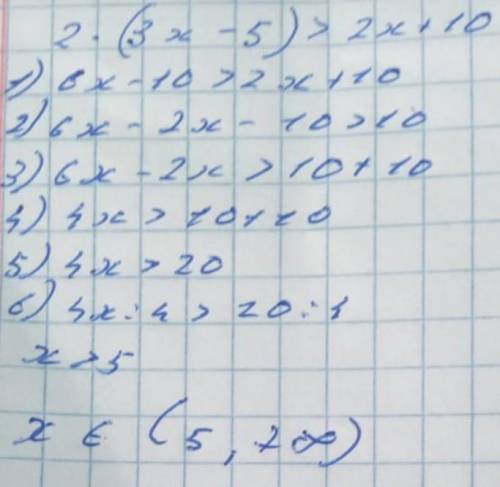 2 · (3x - 5) > 2x + 10
1) 6x - 10 > 2x + 10
2) 6x - 2x - 10 > 10
3) 6x - 2x > 10 + 10
4) 4x > 10 + 10
5) 4x > 20
6) 4x : 4 > 20 : 4
x > 5
x ∈ (5, +∞)